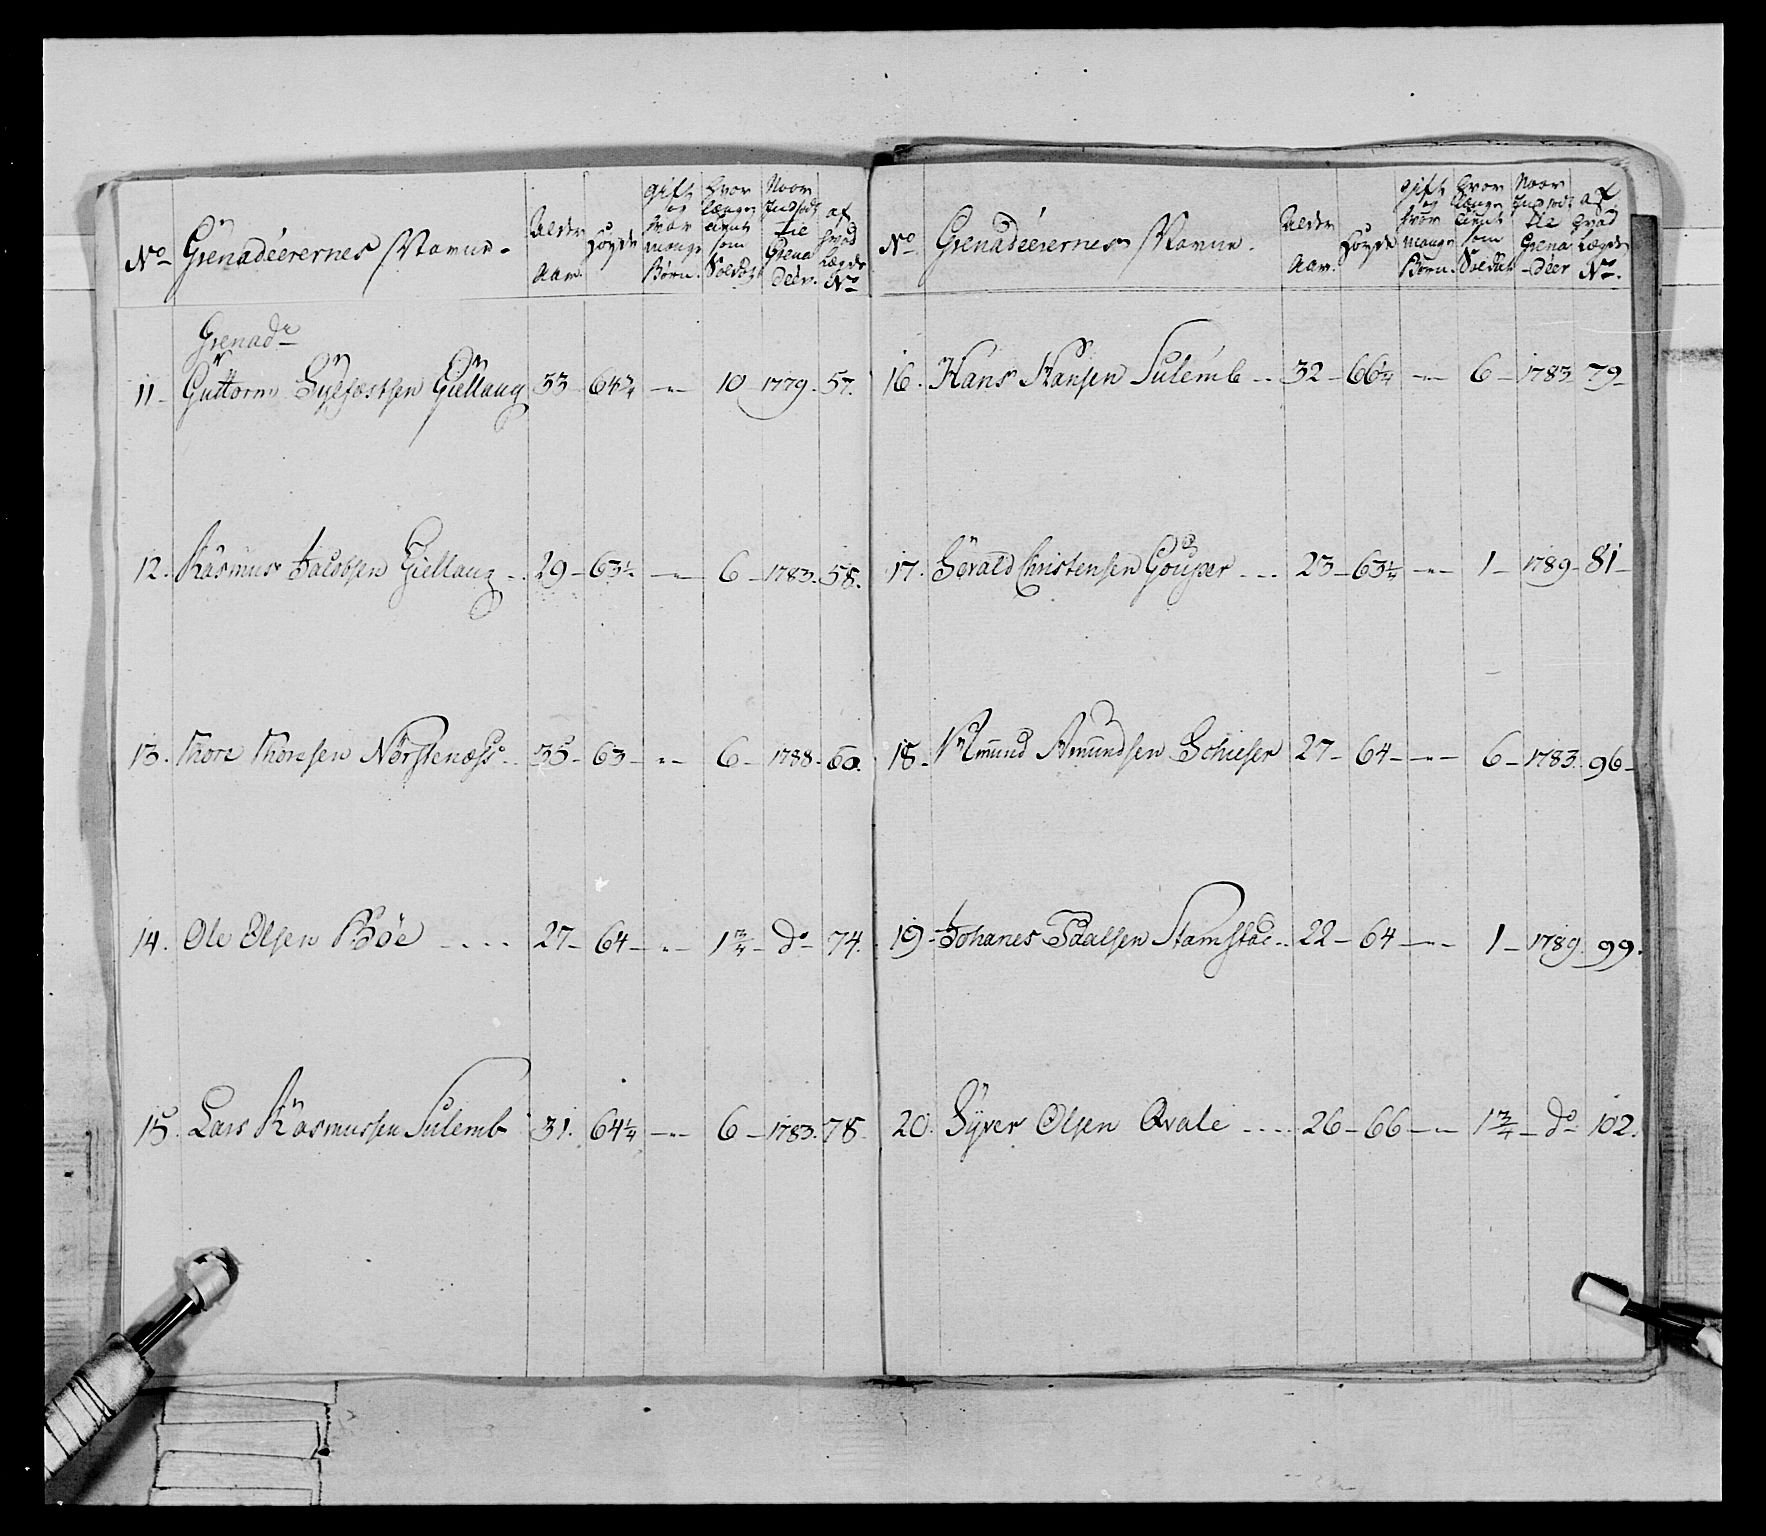 No Grenadéerernes Navne. Alder Aar. Høyde gift og hvor mange Børn. hvor længe tient som Soldat Naar Indsadt til Grenadéer. af hvad Lægde No
Grenadr
11. Guttorm Syefastsen Giellang 33 64 3/4 -"- 10 1779. 57.
12. Rasmus Jacobsen Giellang .. 29 63 1/2 -"- 6 1783. 58.
13. Thore Thoresen Norstenæss .. 35 63 -"- 6 1788. 60.
14. Ole Olsen Bøe .... 27 64 -"- 1 3/4 do 74.
15. Lars Rasmussen Sulemb 31. 64 1/4 -"- 6 1783. 78.
No Grenadéerernes Navne. Alder Aar. Høyde gift og hvor mange Børn. hvor længe tient som Soldat Naar Indsadt til Grenadéer af hvad Lægde No.
16. Hans Hansen Sulemb .. 32 66 1/4 -"- 6 1783 79
17. Sevald Christensen Gouper ... 23 63 1/4 -"- 1 1789 81
18. Amund Amundsen Schieser 27 64 -"- 6 1783. 96
19 Johanes Paalsen Stamstad .. 22 64 -"- 1 1789. 99.
20. Syver Olsen Qvale .... 26 66 -"- 1 3/4 do 102.